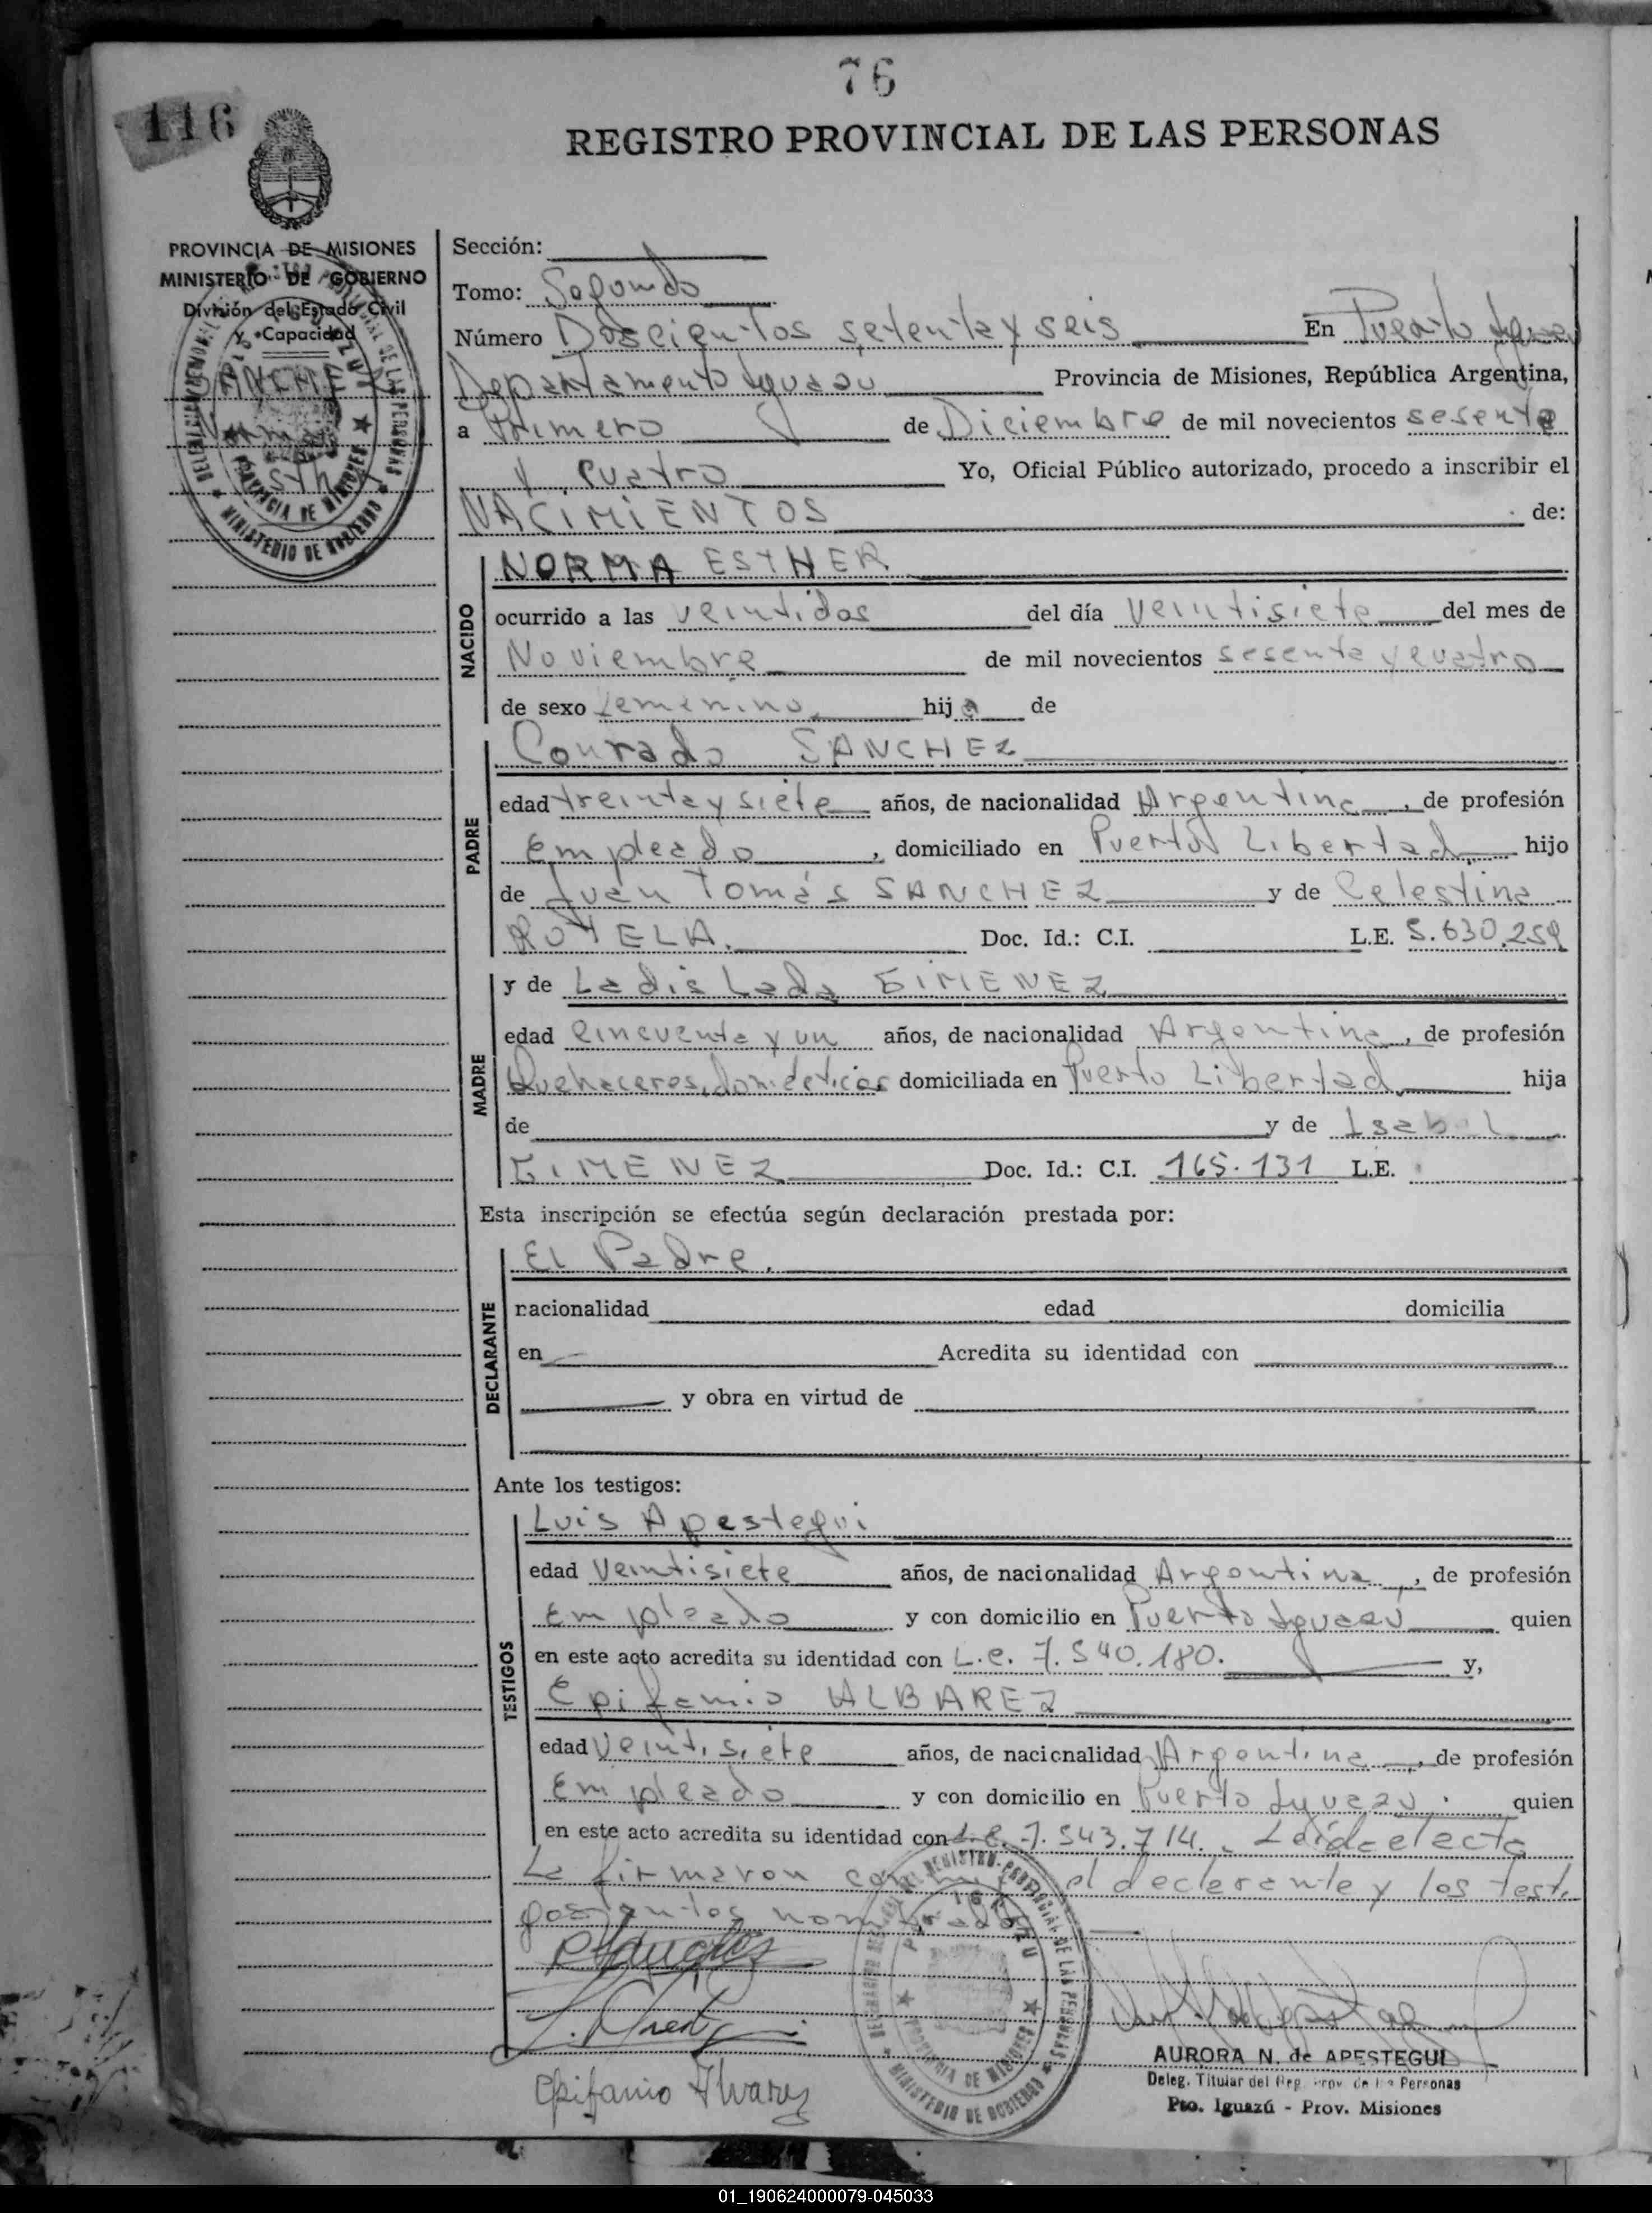 76
116
REGISTRO PROVINCIAL DE LAS PERSONAS
PROVINCIA DE MISIONES
MINISTERIO DE GOBIERNO
División del Estado Civil
y Capacidad
SANCHEZ
Norma
Sth
Sección:
Tomo: Segundo
Número Doscientos setenta y seis En Puerto Iguazú
Departamento Iguazu Provincia de Misiones, República Argentina,
a Primero de Diciembre de mil novecientos sesenta
y cuatro Yo, Oficial Público autorizado, procedo a inscribir el
NACIMIENTOS de:
NACIDO
NORMA ESTHER
ocurrido a las veintidos del día veintisiete del mes de
Noviembre de mil novecientos sesenta y cuatro
de sexo femenino hija de
PADRE
Conrado SANCHEZ
edad treinta y siete años, de nacionalidad Argentina, de profesión
Empleado, domiciliado en Puerto Libertad, hijo
de Juan Tomás SANCHEZ y de Celestina
ROTELA. Doc. Id.: C.I. L.E. 5.630.259
MADRE
y de Ladislada GIMENEZ
edad cincuenta y un años, de nacionalidad Argentina, de profesión
Quehaceres domésticos domiciliada en Puerto Libertad, hija
de y de Isabel
GIMENEZ Doc. Id.: C.I. 165.131 L.E.
Esta inscripción se efectúa según declaración prestada por:
DECLARANTE
El Padre.
nacionalidad edad domicilia
en Acredita su identidad con
y obra en virtud de
Ante los testigos:
TESTIGOS
Luis Apestegui
edad Veintisiete años, de nacionalidad Argentina, de profesión
Empleado y con domicilio en Puerto Iguazú quien
en este acto acredita su identidad con L.e. 7.540.180. y,
Epifanio ALBAREZ
edad Veintisiete años, de nacionalidad Argentina, de profesión
Empleado y con domicilio en Puerto Iguazú quien
en este acto acredita su identidad con L.e. 7.543.714. Leída el acta
La firmaron conmigo el declarante y los testi
gos juntos nombrados
Epifanio Alvarez
AURORA N. de APESTEGUI
Deleg. Titular del Reg. Prov. de las Personas
Pto. Iguazú - Prov. Misiones
01_190624000079-045033